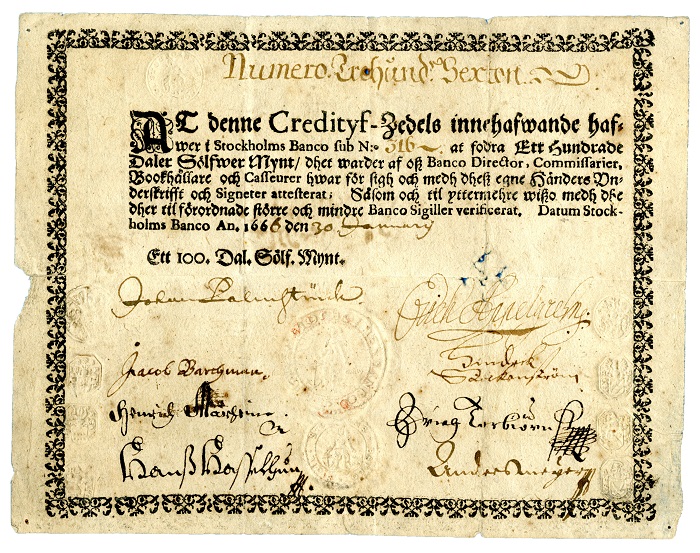 Numero. Trehund. Sexton.
AT denne Credityf-Zedels innehafwande haf-
wer i Stockholms Banco sub N:o 316 at fodra Ett Hundrade
Daler Sölfwer Mynt/ dhet warder af oß Banco Director, Commissarier,
Bookhållare och Casseurer hwar för sigh och medh dheß egne Händers Vn-
derskrifft och Signeter attesterat; Såsom och til yttermehre wißo medh dhe
dher til förordnade större och mindre Banco Sigiller verificerat. Datum Stock-
holms Banco An. 1666 den 30. January
Ett 100. Dal. Sölf. Mynt.
Johan Palmstruch.
Jacob Barchman.
Hindrich
Henrich
Hanß
Anders Meijer